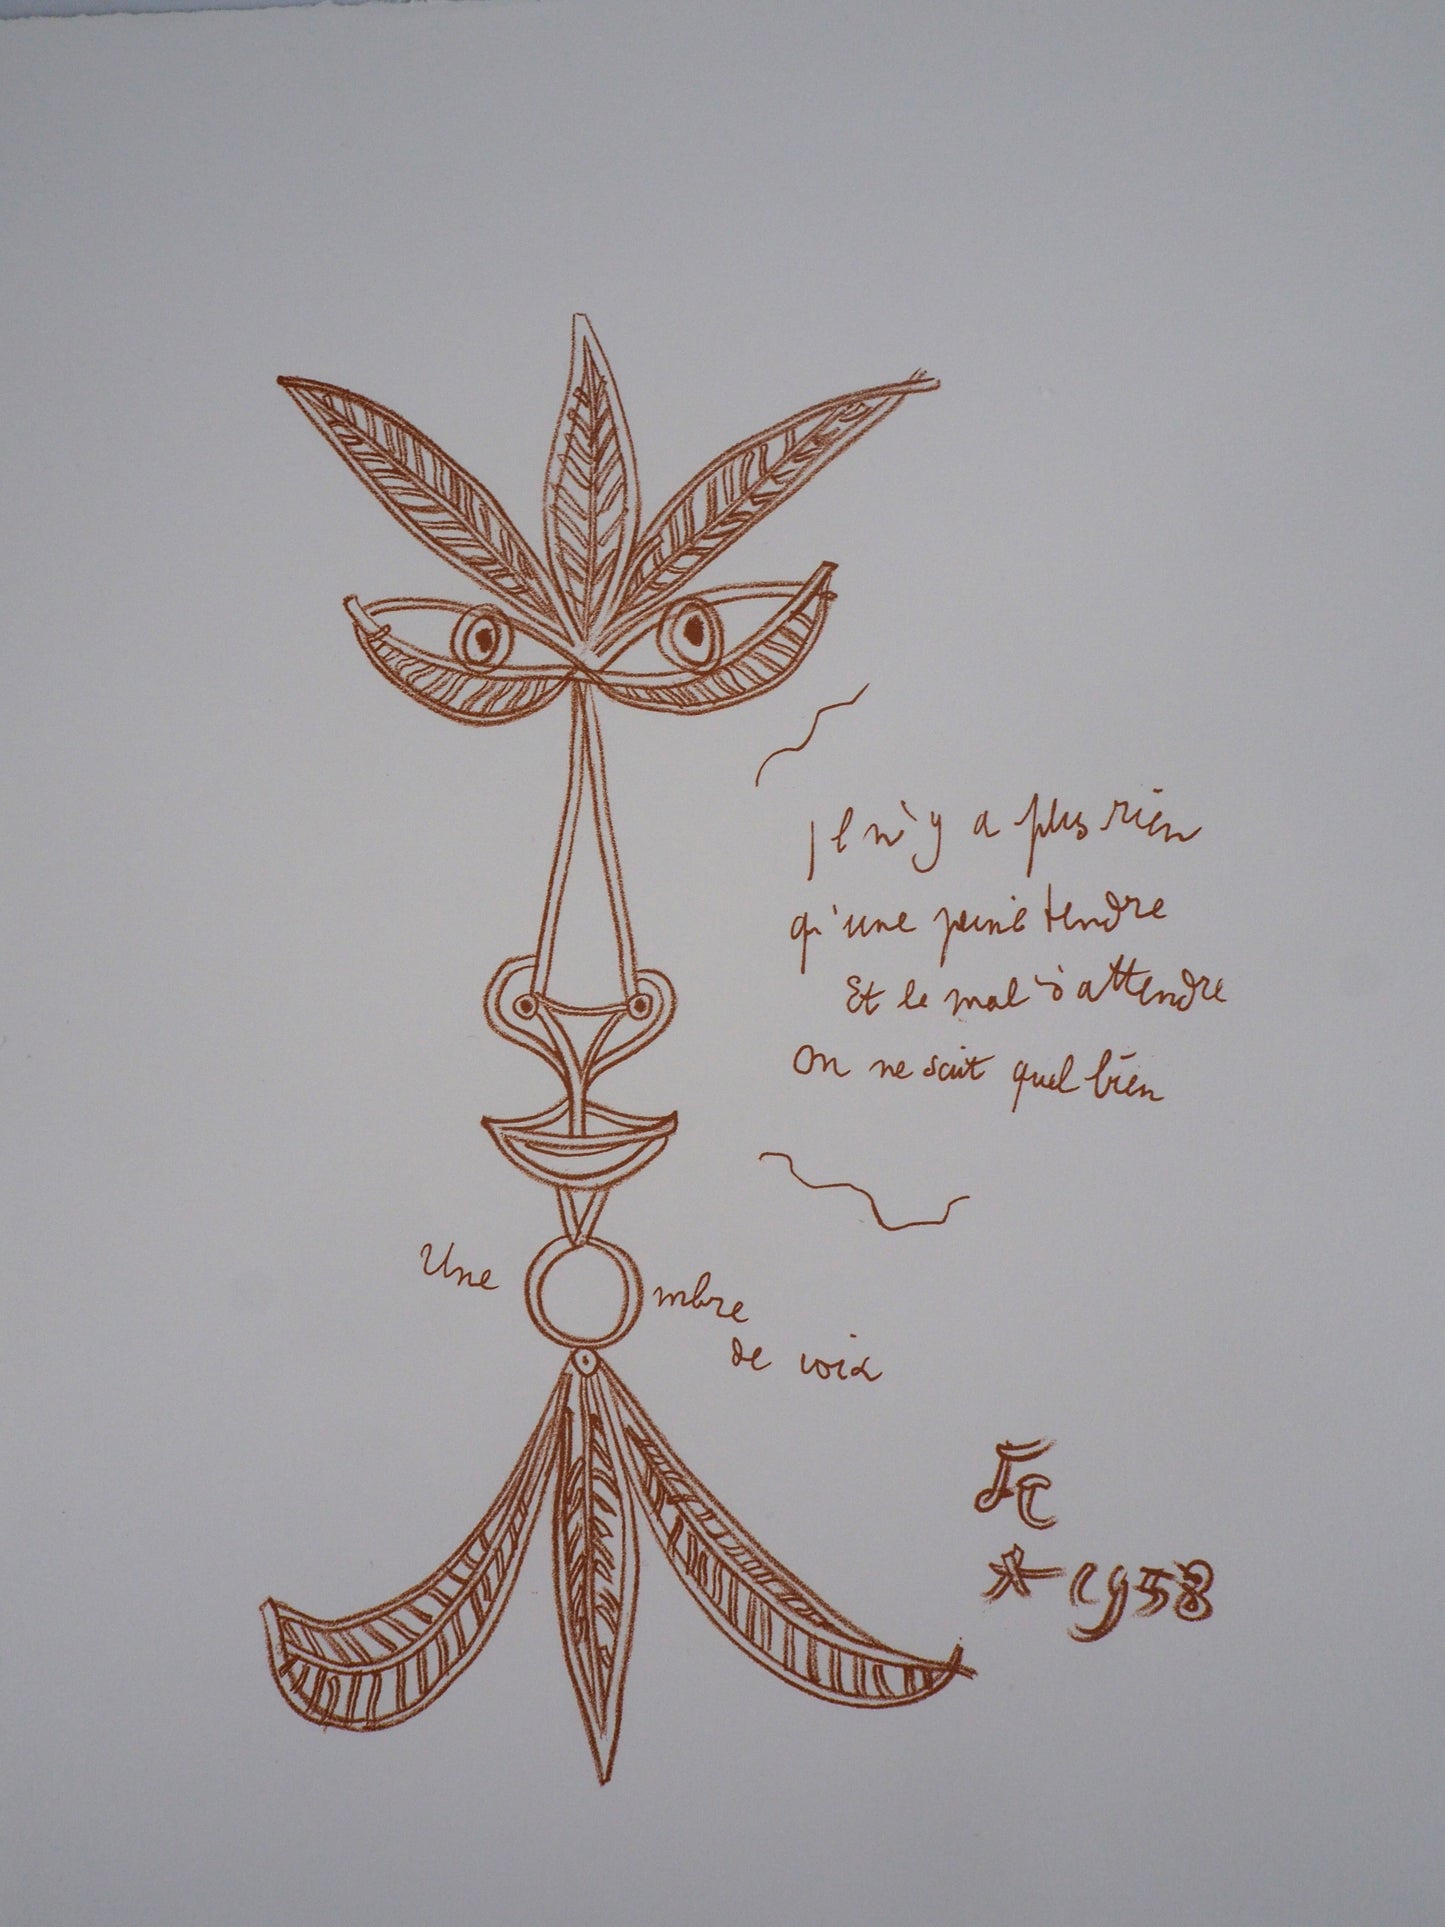 Il n'y a plus rien
qu'une peine tendre
Et le mal d'attendre
On ne sait quel bien
Une Ombre
de voix
JC
1958